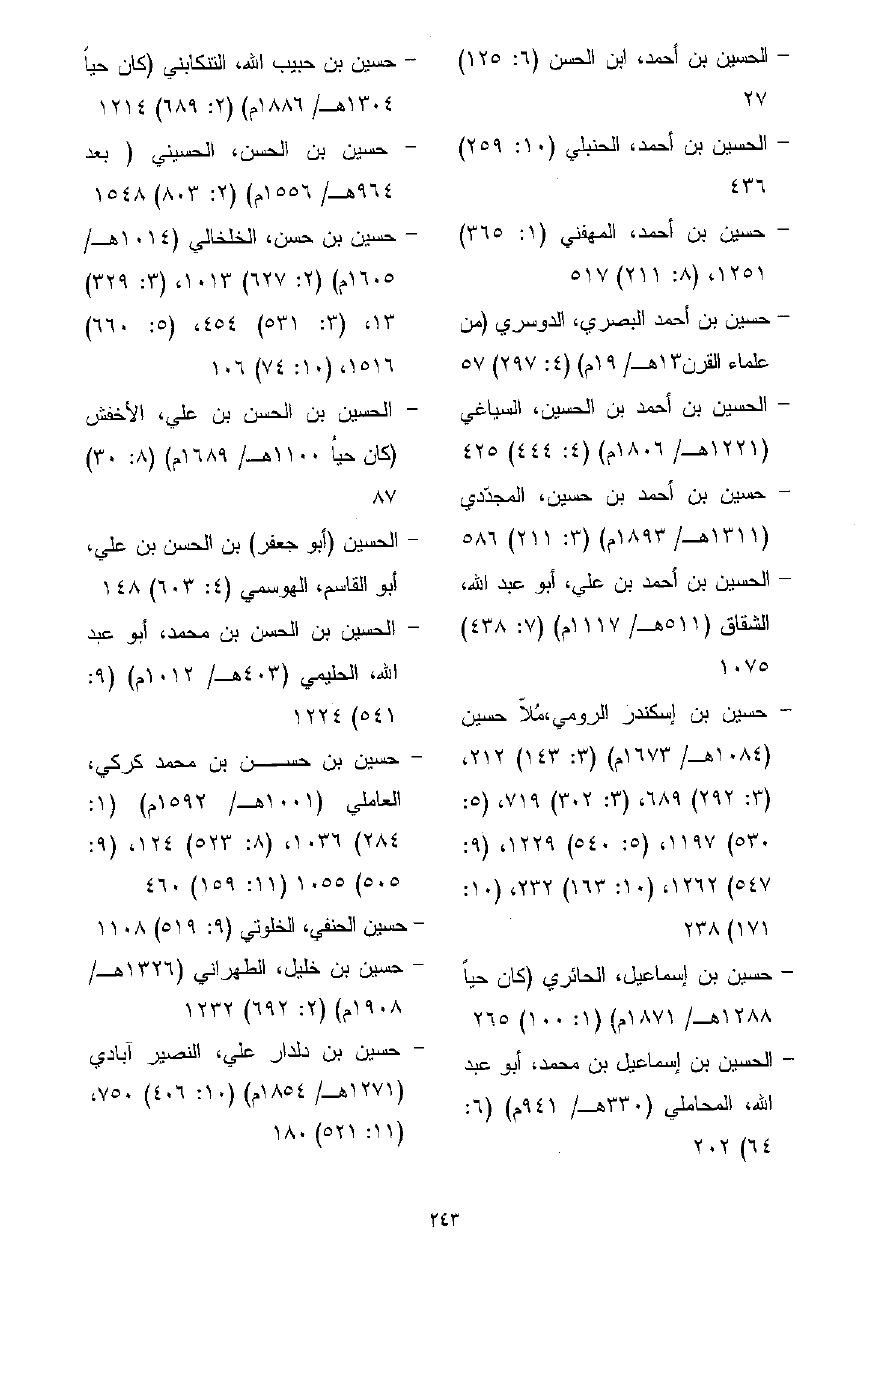 - الحسين بن أحمد، ابن الحسن (٦: ١٢٥)
٢٧
- الحسين بن أحمد، الحنبلي (١٠: ٢٥٩)
٤٣٦
- حسين بن أحمد، المهفني (١: ٣٦٥)
١٢٥١، (٨: ٢١١) ٥١٧
- حسين بن أحمد البصري، الدوسري (من
علماء القرن١٣هـ/ ١٩م) (٤: ٢٩٧) ٥٧
- الحسين بن أحمد بن الحسين، السياغي
(١٢٢١هـ/ ١٨٠٦م) (٤: ٤٤٤) ٤٢٥
- حسين بن أحمد بن حسين، المجدّدي
(١٣١١هـ/ ١٨٩٣م) (٣: ٢١١) ٥٨٦
- الحسين بن أحمد بن علي، أبو عبد الله،
الشقاق (٥١١هـ/ ١١١٧م) (٧: ٤٣٨)
١٠٧٥
- حسين بن إسكندر الرومي،مُلاّ حسين
(١٠٨٤هـ/ ١٦٧٣م) (٣: ١٤٣) ٢١٢،
(٣: ٢٩٢) ٦٨٩، (٣: ٣٠٢) ٧١٩، (٥:
٥٣٠) ١١٩٧، (٥: ٥٤٠) ١٢٢٩، (٩:
٥٤٧) ١٢٦٢، (١٠: ١٦٣) ٢٣٢، (١٠:
١٧١) ٢٣٨
- حسين بن إسماعيل، الحائري (كان حياً
١٢٨٨هـ/ ١٨٧١م) (١: ١٠٠) ٢٦٥
- الحسين بن إسماعيل بن محمد، أبو عبد
الله، المحاملي (٣٣٠هـ/ ٩٤١م) (٦:
٦٤) ٢٠٢
- حسين بن حبيب الله، التنكابني (كان حياً
١٣٠٤هـ/ ١٨٨٦م) (٢: ٦٨٩) ١٢١٤
- حسين بن الحسن، الحسيني ( بعد
٩٦٤هـ/ ١٥٥٦م) (٢: ٨٠٣) ١٥٤٨
- حسين بن حسن، الخلخالي (١٠١٤هـ/
١٦٠٥م) (٢: ٦٢٧) ١٠١٣، (٣: ٣٢٩)
١٣، (٣: ٥٣١) ٤٥٤، (٥: ٦٦٠)
١٥١٦، (١٠: ٧٤) ١٠٦
- الحسين بن الحسن بن علي، الأخفش
(كان حياً ١١٠٠هـ/ ١٦٨٩م) (٨: ٣٠)
٨٧
- الحسين (أبو جعفر) بن الحسن بن علي،
أبو القاسم، الهوسمي (٤: ٦٠٣) ١٤٨
- الحسين بن الحسن بن محمد، أبو عبد
الله، الحليمي (٤٠٣هـ/ ١٠١٢م) (٩:
٥٤١) ١٢٢٤
- حسين بن حسـن بن محمد كركي،
العاملي (١٠٠١هـ/ ١٥٩٢م) (١:
٢٨٤) ١٠٣٦، (٨: ٥٢٣) ١٢٤، (٩:
٥٠٥) ١٠٥٥ (١١: ١٥٩) ٤٦٠
- حسين الحنفي، الخلوتي (٩: ٥١٩) ١١٠٨
- حسين بن خليل، الطهراني (١٣٢٦هـ/
١٩٠٨م) (٢: ٦٩٢) ١٢٣٢
- حسين بن دلدار علي، النصير آبادي
(١٢٧١هـ/ ١٨٥٤م) (١٠: ٤٠٦) ٧٥٠،
(١١: ٥٢١) ١٨٠
٢٤٣